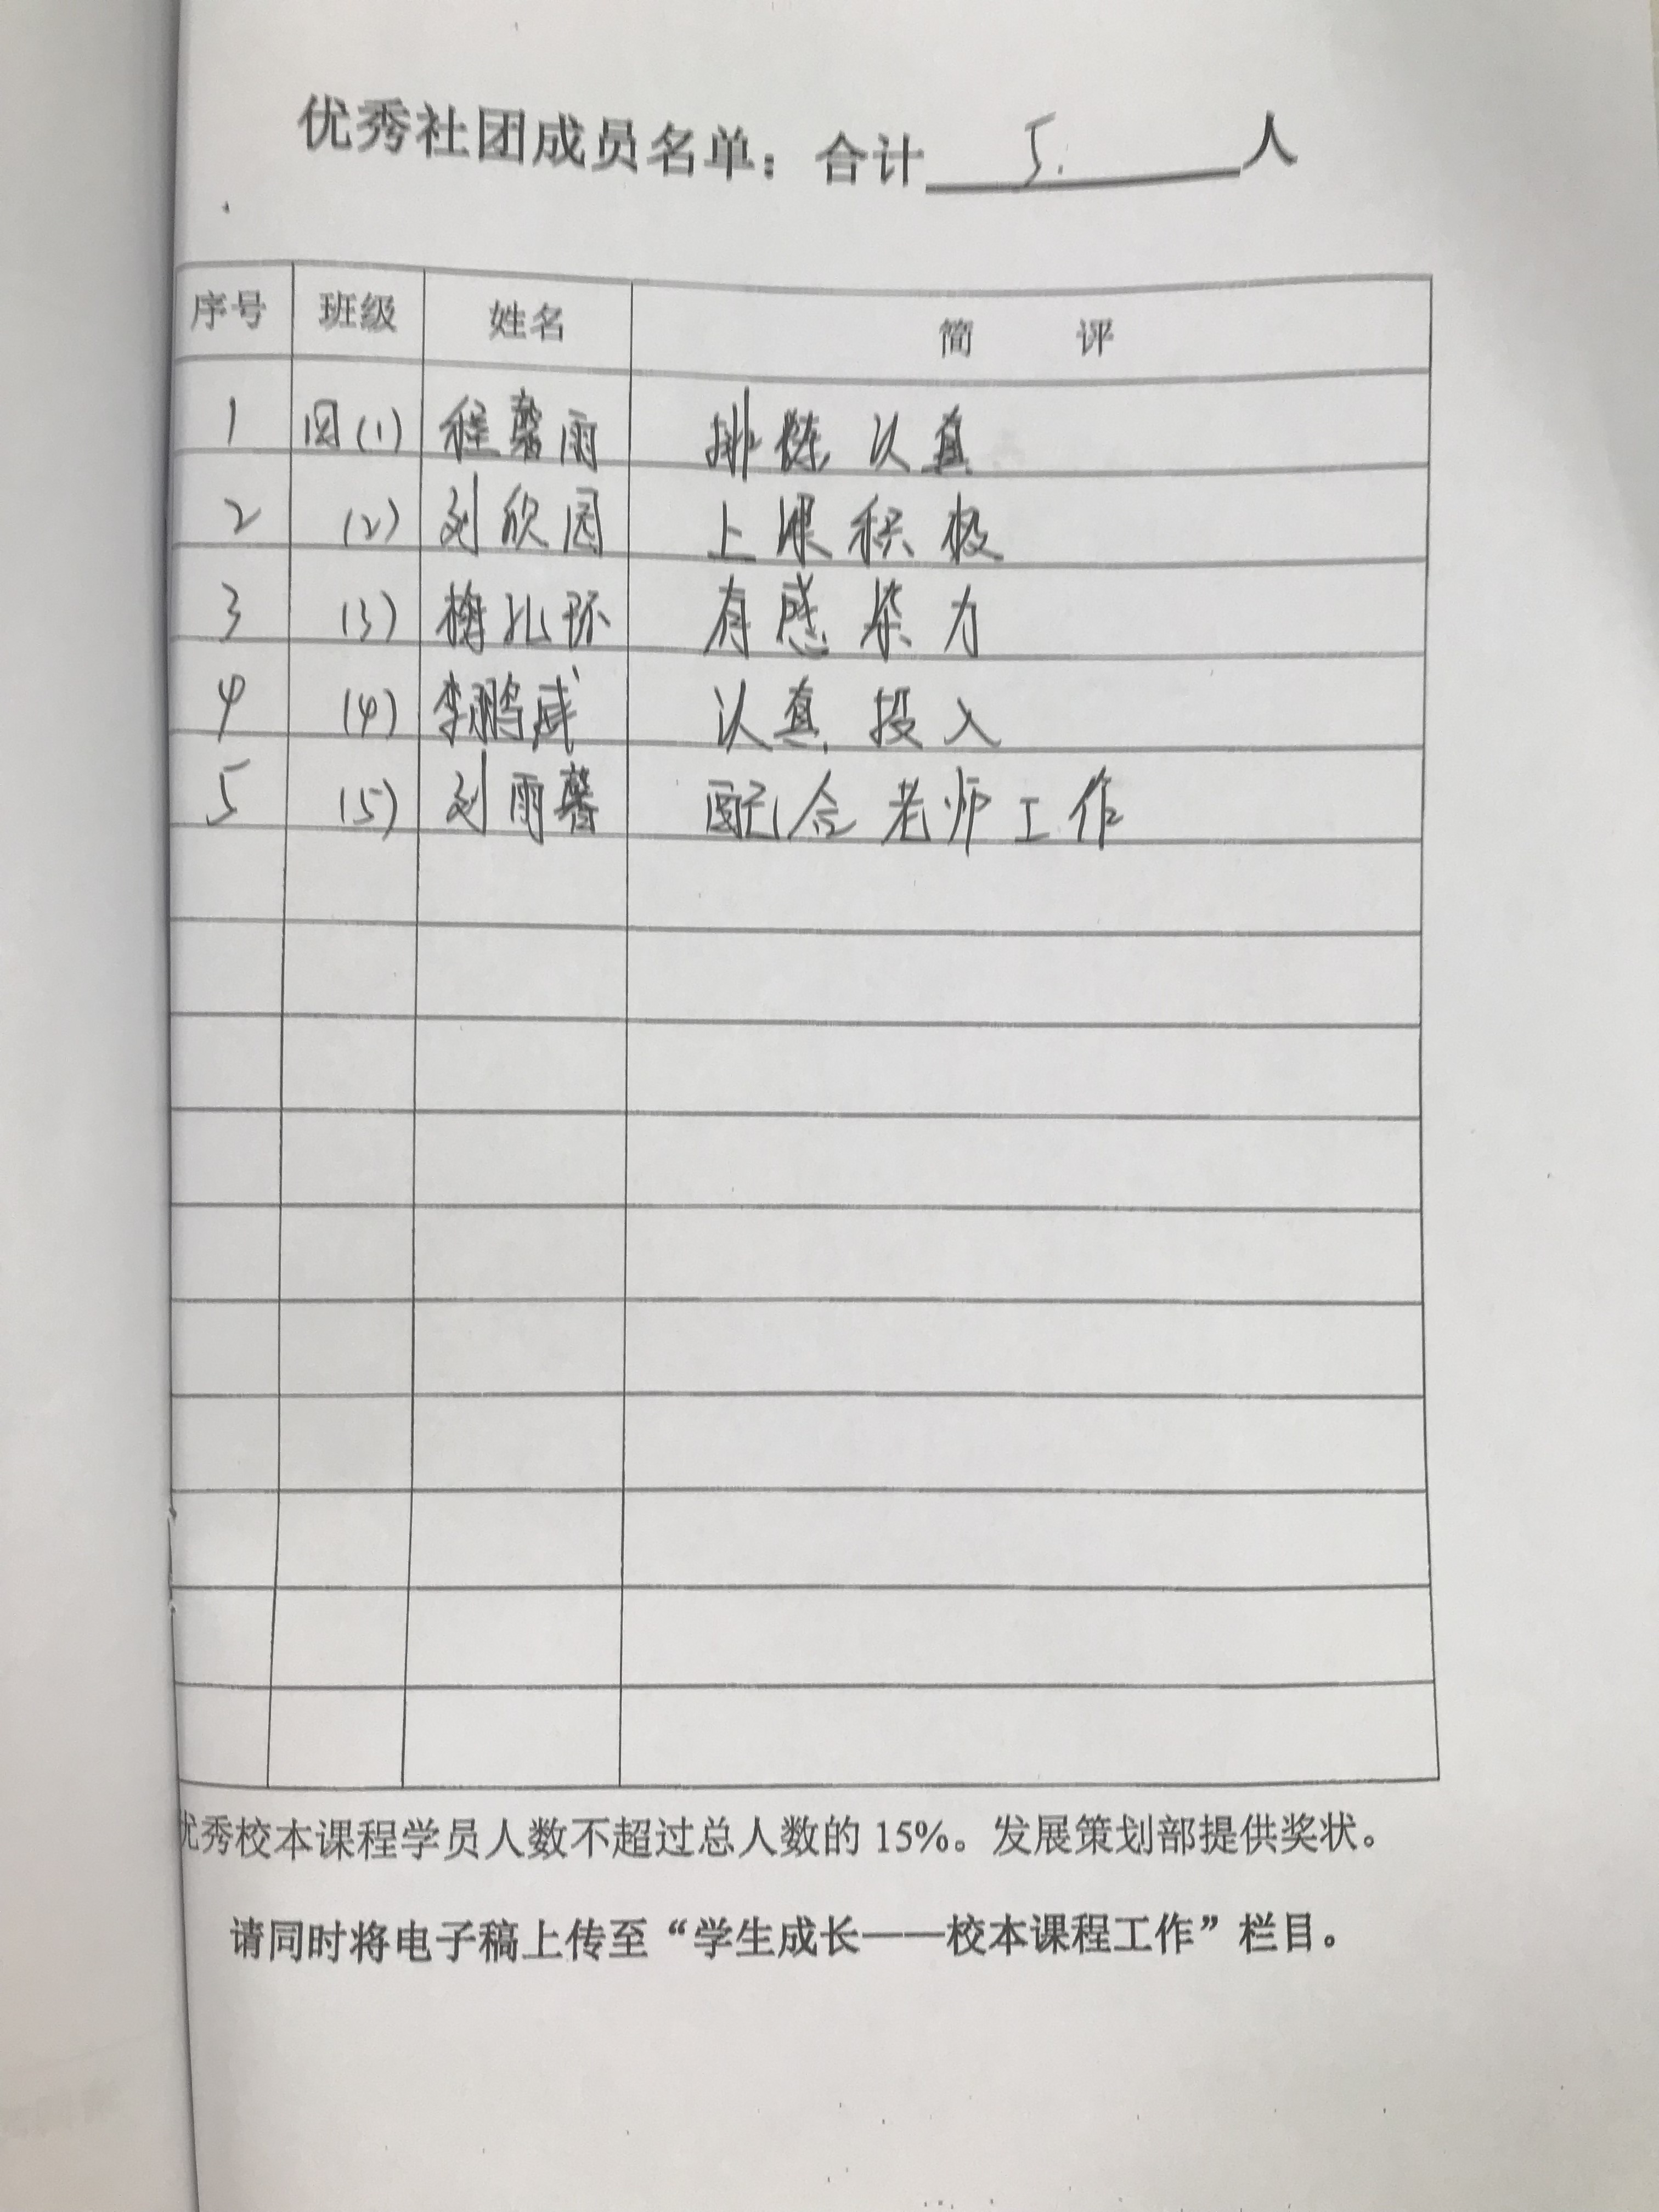 优秀社团成员名单：合计 5. 人
序号 班级 姓名 简 评
1 四(1) 程馨雨 排练认真
2 (2) 刘欣园 上课积极
3 (3) 梅孔环 有感染力
4 (4) 李鹏威 认真投入
5 (5) 刘雨馨 配合老师工作
优秀校本课程学员人数不超过总人数的 15%。发展策划部提供奖状。
请同时将电子稿上传至“学生成长——校本课程工作”栏目。